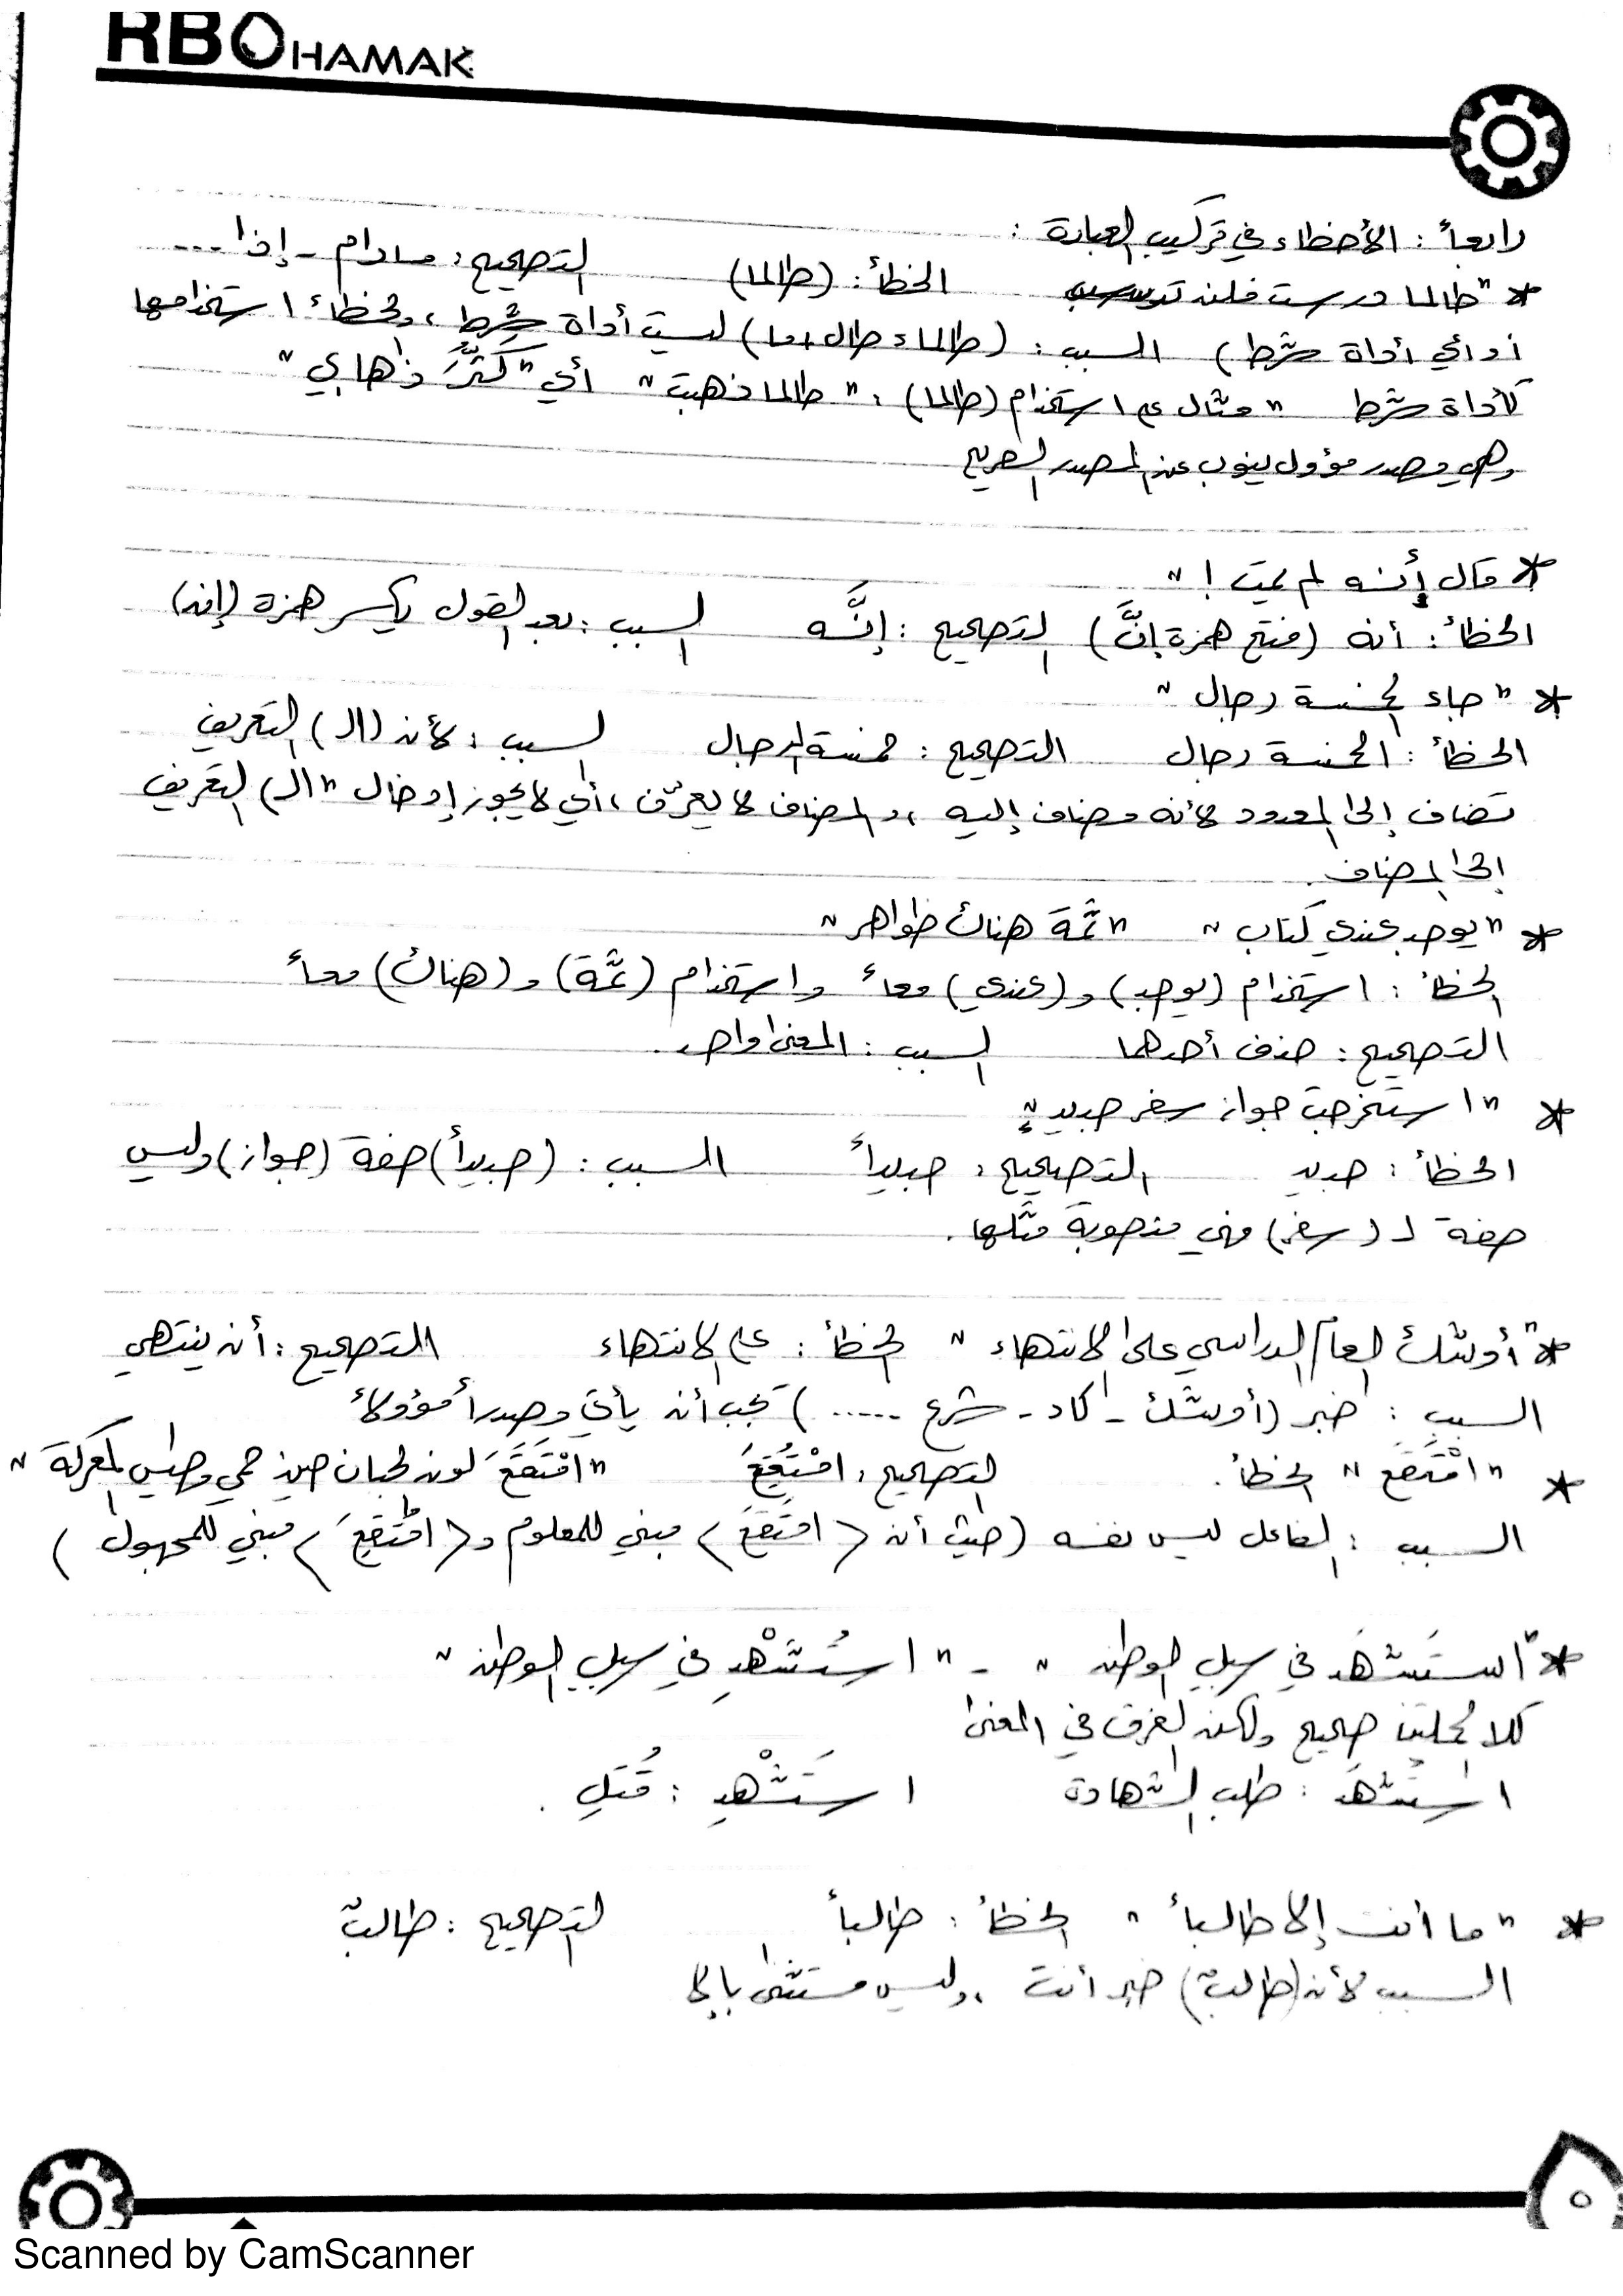 RBOHAMAK
رابعاً : الأخطاء في تركيب العبارة :
* "طالما درست فلن ترسب الخطأ : (طالما) التصحيح : مادام - إذا ....
أو أي أداة شرط) السبب : (طالما = طال + ما) ليست أداة شرط ، والخطأ استخدامها
كأداة شرط " مثال على استخدام (طالما) : " طالما ذهبت " أي " كَثُرَ ذهابي "
وهي مصدر مؤول ينوب عن المصدر الصريح
* قال أنه لم يمت ! "
الخطأ : أنه (فتح همزة إنَّ) التصحيح : إنَّه السبب : بعد القول تكسر همزة (إن)
* " جاء الخمسة رجال "
الخطأ : الخمسة رجال التصحيح : خمسة الرجال السبب : لأن (ال) التعريف
تضاف إلى المعدود لأنه مضاف إليه ، والمضاف لا يعرّف ، أي لا يجوز إدخال " ال) التعريف
إلى المضاف .
* " يوجد عندي كتاب " " ثمَّةَ هناك ظواهر "
الخطأ : استخدام (يوجد) و (عندي) معاً واستخدام (ثمَّة) و (هناك) معاً
التصحيح : حذف أحدهما السبب : المعنى واحد .
* " استخرجت جواز سفر جديدٍ "
الخطأ : جديد التصحيح : جديداً السبب : (جديداً) صفة (جواز) وليس
صفة لـ (سفر) فهي منصوبة مثلها .
* " أوشك العام الدراسي على الانتهاء " الخطأ : على الانتهاء التصحيح : أن ينتهي
السبب : خبر (أوشك - كاد - شرع .....) يجب أن يأتي مصدراً مؤولاً
* " امْتَقَعَ " الخطأ . التصحيح : امْتُقِعَ " امْتَقَعَ لون الجبان حين حمي وطيس المعركة "
السبب : الفاعل ليس نفسه (حيث أن < امتَقَعَ > مبني للمعلوم و < امْتُقِعَ > مبني للمجهول )
* " استَشهَد في سبيل الوطن " - " استُشْهِد في سبيل الوطن "
كلا الجملتين صحيح ولكن الفرق في المعنى
استَشْهَد : طلب الشهادة استُشْهِد : قُتِل .
* " ما أنت إلا طالباً " الخطأ : طالباً التصحيح : طالبٌ
السبب لأن (طالبٌ) خبر أنت ، وليس مستثنى بإلا
٥
Scanned by CamScanner